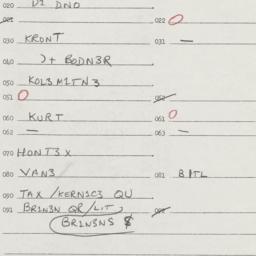 020 D1 DNO
021
022 O
030 KRONT
031 —
040 )+ BODN3R
050 KOLSM1TN3
051 O
052
060 KURT
061 O
062 —
063 —
070 HONT3X
080 VAN3
081 B1TL
090 TAX /KERN1C3 QU
091 BR1N3N QR/LIT,
092
BR1N3NS $